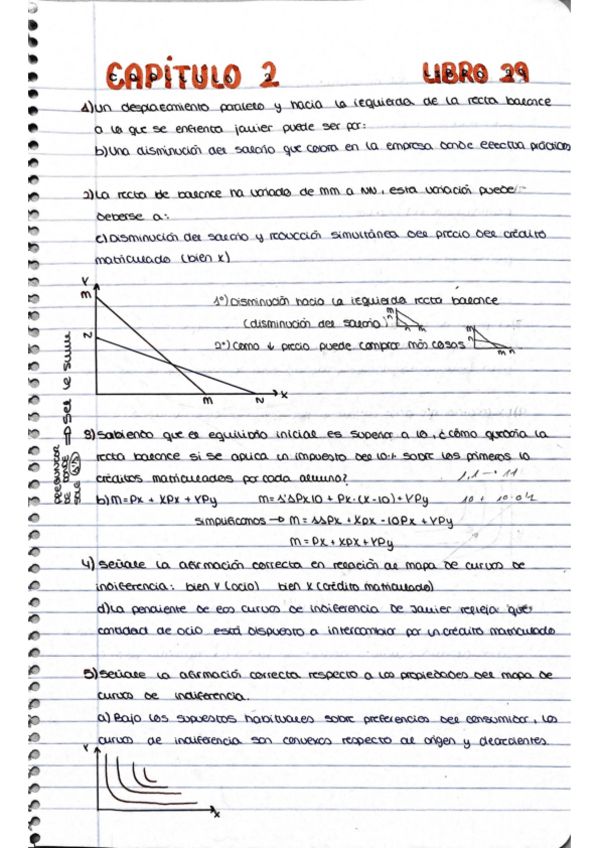 CAPÍTULO 2 LIBRO 29
1) Un desplazamiento paralelo y hacia la izquierda de la recta balance
a la que se enfrenta Javier puede ser por:
b) Una disminución del salario que cobra en la empresa donde efectúa prácticas
2) La recta de balance ha variado de MM a NN, esta variación puede
deberse a:
c) Disminución del salario y reducción simultánea del precio del crédito
matriculado (bien X)
Y
M
N
M N X
1º) Disminución hacia la izquierda recta balance
(disminución del salario) m n n m
2º) Como ↓ precio puede comprar más cosas m n m n
PREGUNTAR DE DONDE SALE (0'1) ⇒ Se le suma
3) Sabiendo que el equilibrio inicial es superior a 10, ¿cómo quedaría la
recta balance si se aplica un impuesto del 10% sobre los primeros 10
créditos matriculados por cada alumno? 1,1 → 11
b) M = Px + XPx + YPy M = 1'1Px10 + Px·(x-10) + YPy 10 + 10·0'1
simplificamos → M = 11Px + XPx - 10Px + YPy
M = Px + XPx + YPy
4) Señale la afirmación correcta en relación al mapa de curvas de
indiferencia: bien Y (ocio) bien X (crédito matriculado)
d) La pendiente de las curvas de indiferencia de Javier refleja qué
cantidad de ocio está dispuesto a intercambiar por un crédito matriculado
5) Señale la afirmación correcta respecto a las propiedades del mapa de
curvas de indiferencia.
a) Bajo los supuestos habituales sobre preferencias del consumidor, las
curvas de indiferencia son convexas respecto al origen y decrecientes.
Y
X